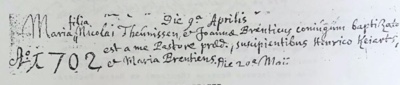 Die 9a Aprilis
Maria filia Nicolai Theunissen, et Joannæ Brenticus coniugum baptizata
est a me Pastore præd: suscipientibus Henrico Keiarts,
Ao 1702 et Maria Brentiens, Die 20a Maii